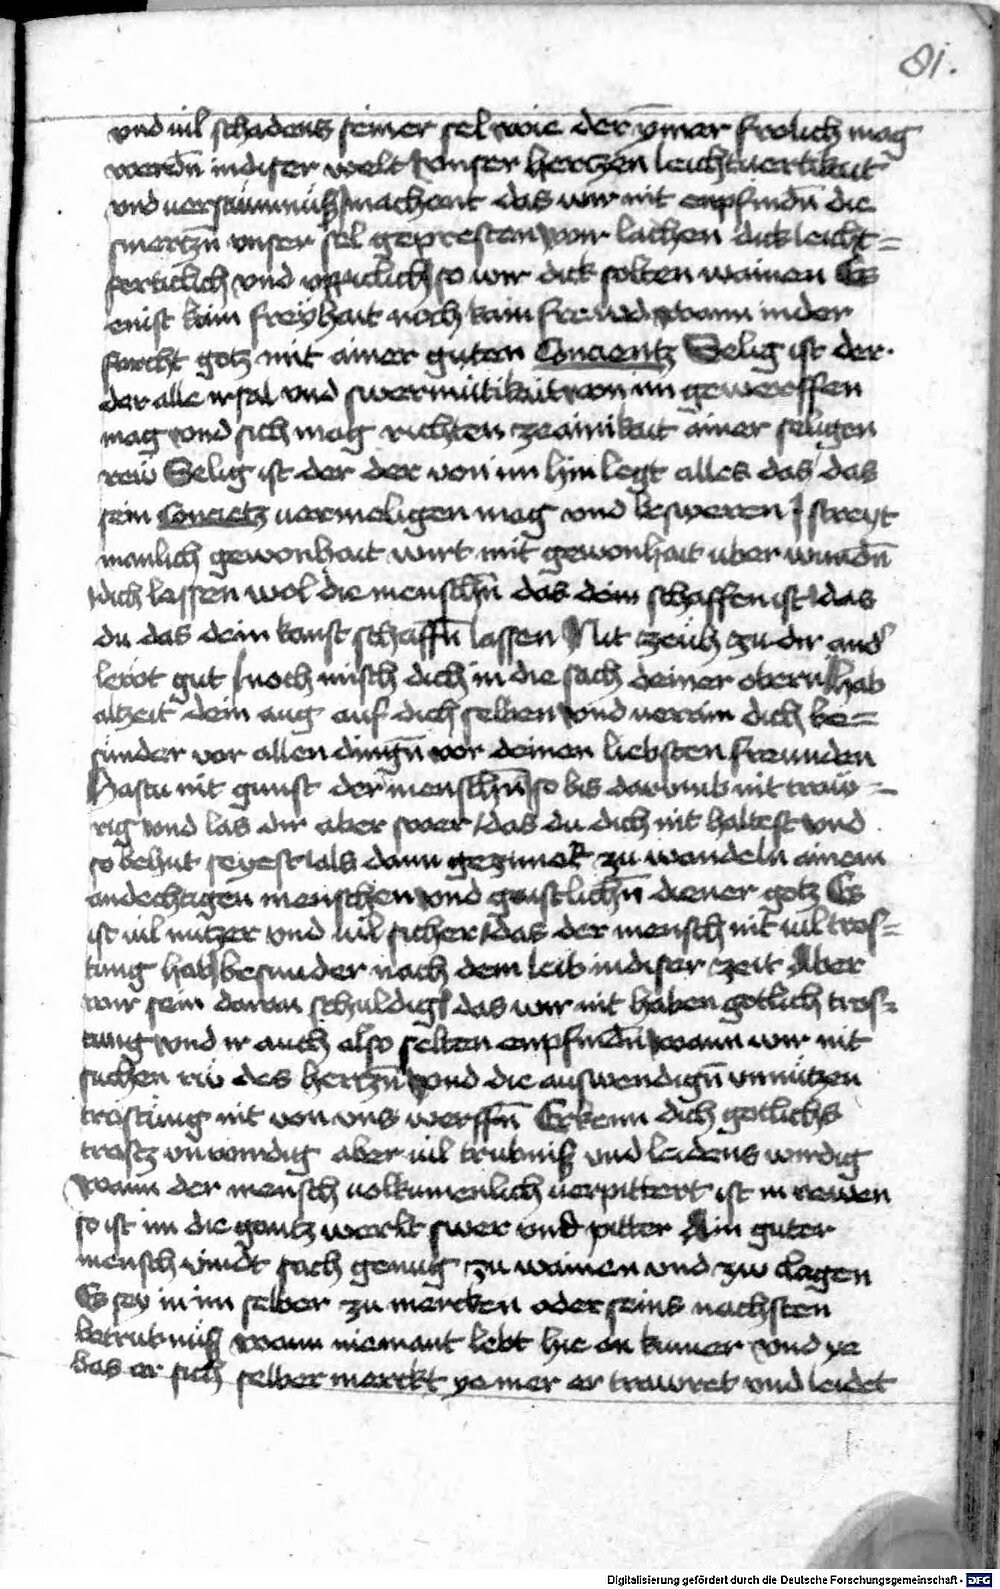 81.
vnd uil schadens seiner sel wie der ymer frolich mag
werdn̄ in diser welt / vnser hertzen leichtuertikait
vnd uersaumnüß machent das wir nit enpfindn̄ die
smertzn̄ vnser sel gepresten wir lachen dick leicht=
fertiklich vnd so wir dick solten wainen Es
enist kain freyhait noch kain frewd wann in der
forcht gotz mit ainer guten Concientz Selig ist der
der alle irsal vnd swermütikait von im gewerffen
mag vnd sich mag richten ze ainikait ainer seligen
rew Selig ist der der von im hin legt alles das das
sein Concietz uermeligen mag vnd besweren / streyt
manlich gewonhait wirt mit gewonhait uber wundn̄
dich lassen wol die menschn̄ das dein schaffen ist / das
du das dein kanst schaffn̄ lassen Nit zeuh zu dir and
lewt gut / noch misch dich in die sach deiner obern / hab
alzeit dein aug auf dich selben vnd uermain dich be=
sunder vor allen dingn̄ vor deinen liebsten freunden
Hastu nit gunst der menschn̄ so bis darumb nit traw=
rig vnd las dir aber swer / das du dich nit haltest vnd
so behut seyest als dann gezimet zu wandeln ainem
andechtigen menschen vnd geistlichn̄ diener gotz Es
ist uil nutzer vnd uil sicher / das der mensch nit uil tros=
tung hab / besunder nach dem leib in diser zeit Aber
wir sein daran schuldig / das wir nit haben gotlich tros=
tung vnd ir auch also selten enpfindn̄ wann wir nit
suchen riw des hertzn̄ vnd die auswendign̄ vnnützen
trostung nit von vns werffn̄ Erkenn dich gotlichs
trostz vnwirdig aber uil trubniß vnd leidens wirdig
Wann der mensch uolkumenlich uerpittert ist in rewen
so ist im die gantz werlt swer vnd pitter Ain guter
mensch vindt sach genug zu wainen vnd zw clagen
Es sey in im selber zu mercken oder seins nachsten
betrubnüß wann niemant lebt hie an kumer vnd ye
bas er sich selber merckt ye mer er trawret vnd leidet
Digitalisierung gefördert durch die Deutsche Forschungsgemeinschaft - DFG